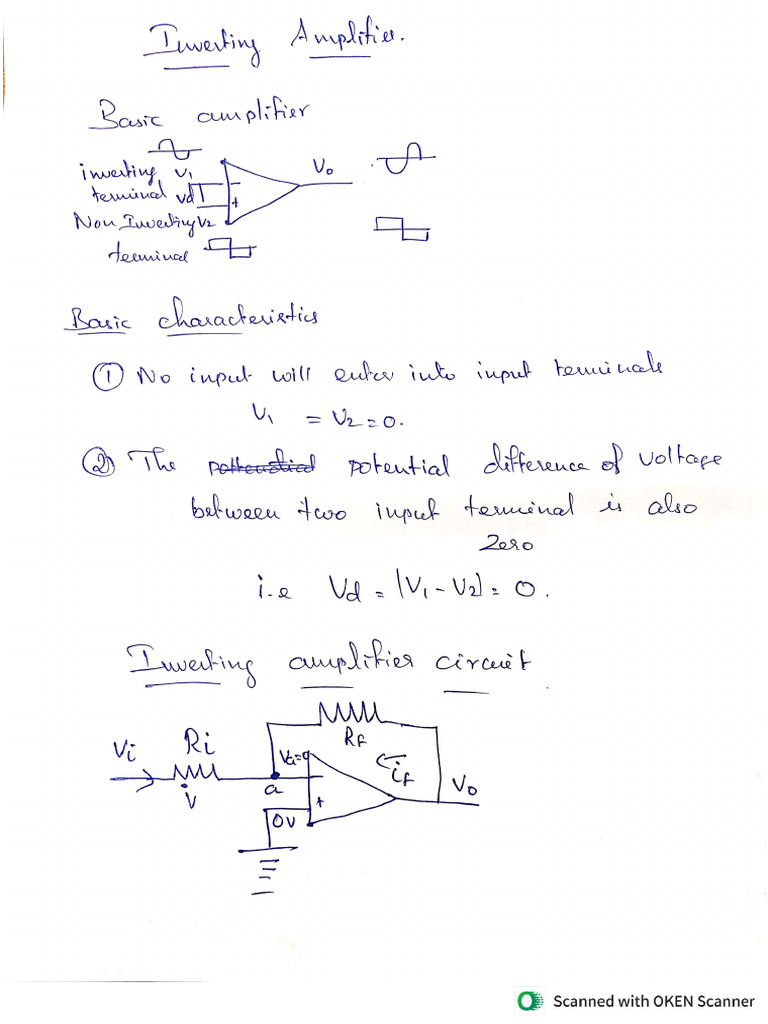 Inverting Amplifier.
Basic amplifier
inverting V1
terminal Vd
-
+
Vo
Non Inverting V2
terminal
Basic characteristics
① No input will enter into input terminals
V1 = V2 = 0.
② The potential difference of voltage
between two input terminal is also
Zero
i.e Vd = |V1 - V2| = 0.
Inverting amplifier circuit.
Vi Ri
i
Rf
if
Va=0
a
-
+
0V
Vo
Scanned with OKEN Scanner